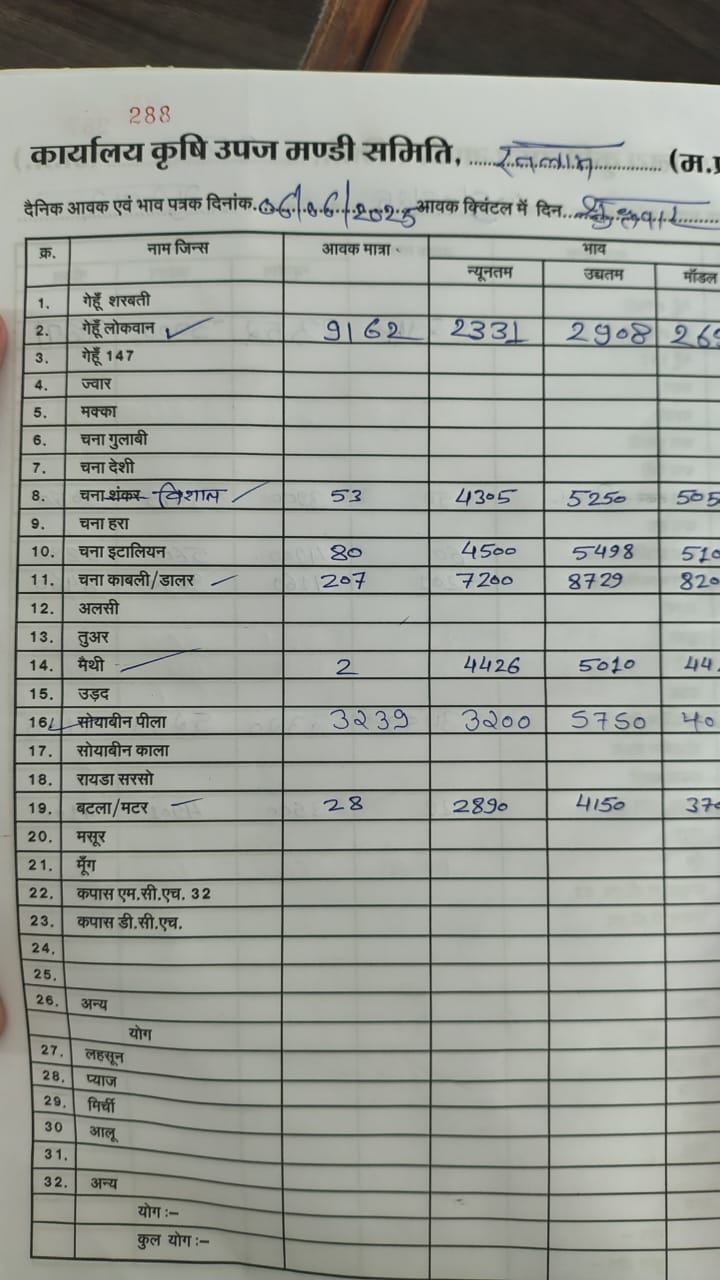 288
कार्यालय कृषि उपज मण्डी समिति, रतलाम (म.प्र
दैनिक आवक एवं भाव पत्रक दिनांक. 06/06/2025 आवक क्विंटल में दिन.. शुक्रवार
क्र. नाम जिन्स आवक मात्रा भाव
न्यूनतम उच्चतम मॉडल
1. गेहूँ शरबती
2. गेहूँ लोकवान 9162 2331 2908 269
3. गेहूँ 147
4. ज्वार
5. मक्का
6. चना गुलाबी
7. चना देशी
8. चना शंकर विशाल 53 4305 5250 505
9. चना हरा
10. चना इटालियन 80 4500 5498 510
11. चना काबली/डालर 207 7200 8729 820
12. अलसी
13. तुअर
14. मैथी 2 4426 5010 44
15. उड़द
16. सोयाबीन पीला 3239 3200 5750 40
17. सोयाबीन काला
18. रायडा सरसो
19. बटला/मटर 28 2890 4150 370
20. मसूर
21. मूँग
22. कपास एम.सी.एच. 32
23. कपास डी.सी.एच.
24.
25.
26. अन्य
योग
27. लहसून
28. प्याज
29. मिर्ची
30 आलू
31.
32. अन्य
योग :–
कुल योग :–